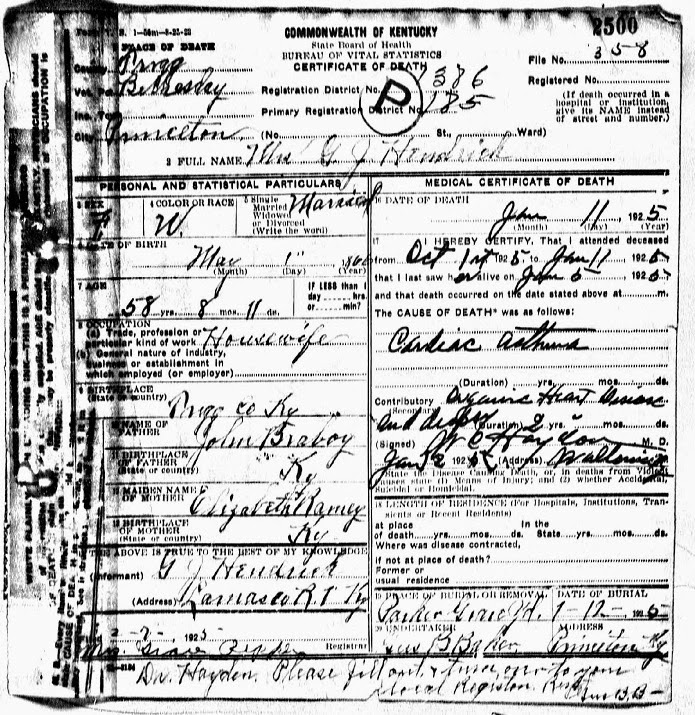 Form V. S. 1-50m-8-21-22
2500
COMMONWEALTH OF KENTUCKY
State Board of Health
BUREAU OF VITAL STATISTICS
CERTIFICATE OF DEATH
File No. 358
Registered No.
(If death occurred in a hospital or institution, give its NAME instead of street and number.)
PLACE OF DEATH
County Trigg
Vot. Pct. Bethesday
Inc. Town
City Princeton
Registration District No. 1386
Primary Registration District No. 7185
P
(No. St., Ward)
2 FULL NAME Mrs G J Hendrick
PERSONAL AND STATISTICAL PARTICULARS
3 SEX F
4 COLOR OR RACE W.
5 Single Married Widowed or Divorced (Write the word) Married
6 DATE OF BIRTH
May 1 1866
(Month) (Day) (Year)
7 AGE
58 yrs. 8 mos. 11 ds.
IF LESS than 1 day hrs. or min.?
8 OCCUPATION
(a) Trade, profession or particular kind of work Housewife
(b) General nature of industry, business or establishment in which employed (or employer)
9 BIRTHPLACE (State or country)
Trigg co Ky
10 NAME OF FATHER John Braboy
11 BIRTHPLACE OF FATHER (State or country) Ky
12 MAIDEN NAME OF MOTHER Elizabeth Ramey
13 BIRTHPLACE OF MOTHER (State or country) Ky
14 THE ABOVE IS TRUE TO THE BEST OF MY KNOWLEDGE
(Informant) G J Hendrick
(Address) Lamasco R.1 Ky
2-2-, 1925
Mrs. Grace Registrar
MEDICAL CERTIFICATE OF DEATH
16 DATE OF DEATH
Jan 11, 1925
(Month) (Day) (Year)
17 I HEREBY CERTIFY, That I attended deceased
from Oct 1st 1925 to Jan 11 1925
that I last saw her alive on Jan 5 1925
and that death occurred on the date stated above at m.
The CAUSE OF DEATH* was as follows:
Cardiac asthma
(Duration) yrs. mos. ds.
Contributory Organic Heart Disease
(Secondary) and (Duration) 2 yrs. mos. ds.
(Signed) W C Haydon M. D.
Jan 12 1925 (Address)
*State the Disease Causing Death, or, in deaths from Violent causes state (1) Means of Injury; and (2) whether Accidental, Suicidal or Homicidal.
18 LENGTH OF RESIDENCE (For Hospitals, Institutions, Transients or Recent Residents)
at place of death yrs. mos. ds. In the State yrs. mos. ds.
Where was disease contracted,
if not at place of death?
Former or usual residence
19 PLACE OF BURIAL OR REMOVAL DATE OF BURIAL
1-12-, 1925
20 UNDERTAKER ADDRESS
Baker Princeton Ky
Dr. Hayden. Please fill out & turn over to your
local Registrar.